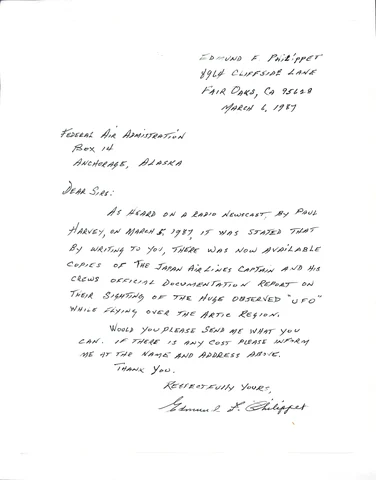 EDMUND F PHILIPPET
8964 CLIFFSIDE LANE
FAIR OAKS, CA 95628
MARCH 6, 1987
FEDERAL AIR ADMISTRATION
BOX 14
ANCHORAGE, ALASKA
DEAR SIRS:
AS HEARD ON A RADIO NEWSCAST, BY PAUL
HARVEY, ON MARCH 5, 1987, IT WAS STATED THAT
BY WRITING TO YOU, THERE WAS NOW AVAILABLE
COPIES OF THE JAPAN AIR LINES CAPTAIN AND HIS
CREWS OFFICIAL DOCUMENTATION REPORT ON
THEIR SIGHTING OF THE HUGE OBSERVED "UFO"
WHILE FLYING OVER THE ARTIC REGION.
WOULD YOU PLEASE SEND ME WHAT YOU
CAN. IF THERE IS ANY COST PLEASE INFORM
ME AT THE NAME AND ADDRESS ABOVE.
THANK YOU.
RESPECTFULLY YOURS,
Edmund F. Philippet